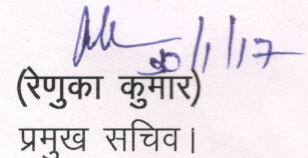 30/1/17
(रेणुका कुमार)
प्रमुख सचिव।